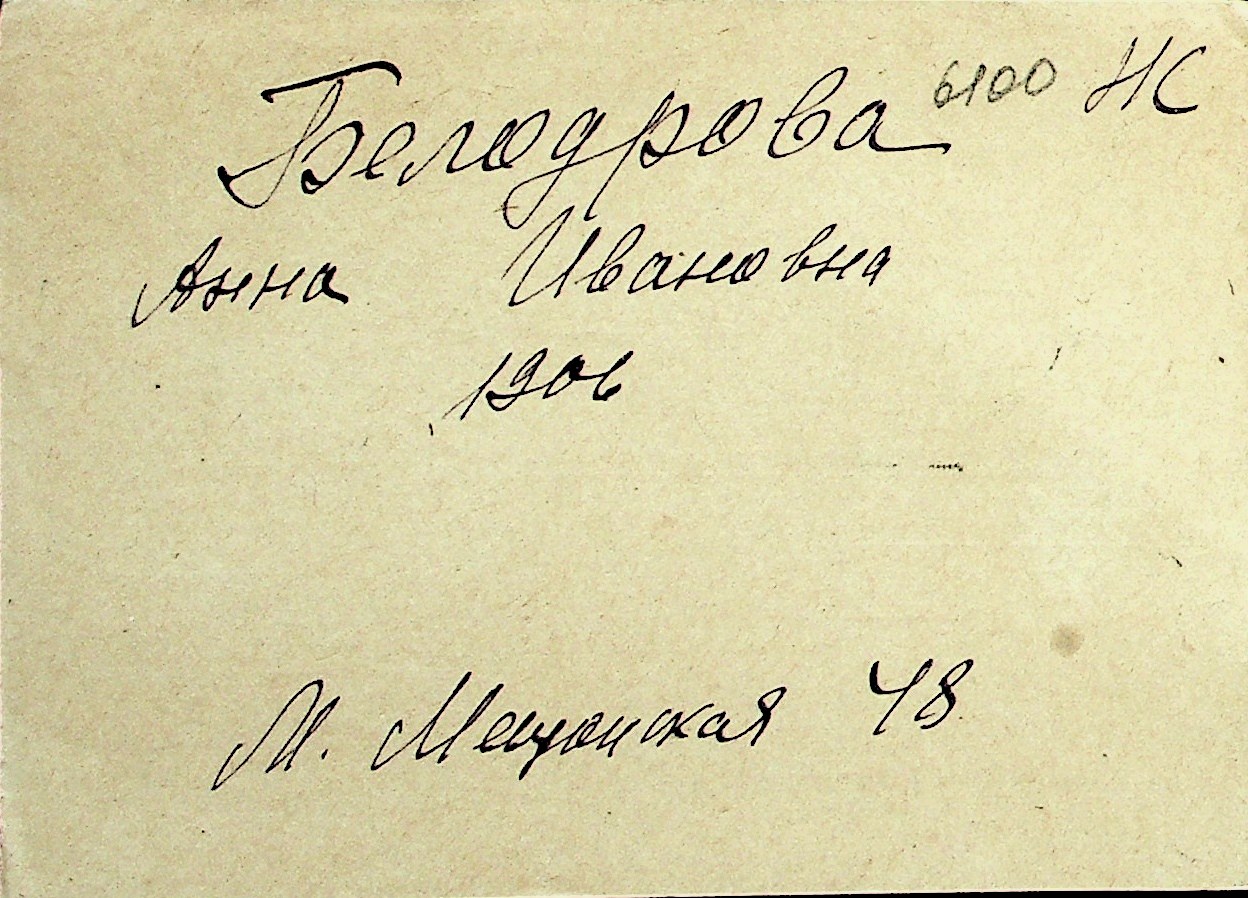 Белодрова 6100 НС
Анна Ивановна
1906
М. Мещанская 48